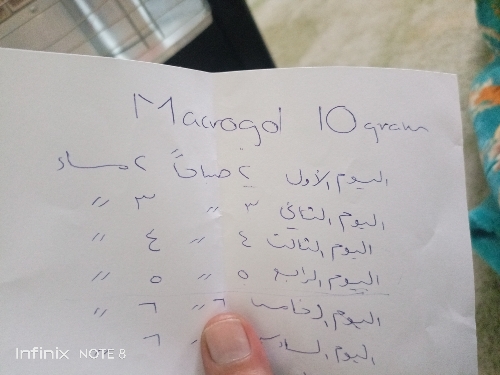 Macrogol 10 gram
اليوم الأول ٢ صباحاً ٢ مساء
اليوم الثاني ٣ 〃 ٣ 〃
اليوم الثالث ٤ 〃 ٤ 〃
اليوم الرابع ٥ 〃 ٥ 〃
اليوم الخامس ٦ 〃 ٦ 〃
اليوم السادس 〃 ٦
Infinix NOTE 8